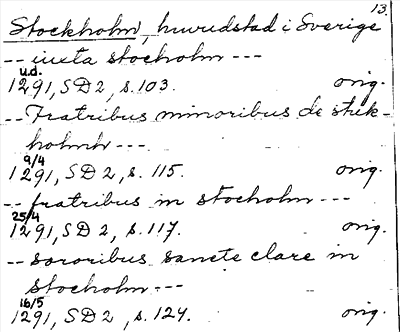 13.
Stockholm, huvudstad i Sverige
-- iuxta stocholm ---
u.d.
1291, SD 2, s. 103. orig.
-- Fratribus minoribus de stek-
holmh ---
9/4
1291, SD 2, s. 115. orig.
-- fratribus in stocholm ---
25/4
1291, SD 2, s. 117. orig.
-- sororibus sancte clare in
stocholm ---
16/5
1291, SD 2, s. 124. orig.